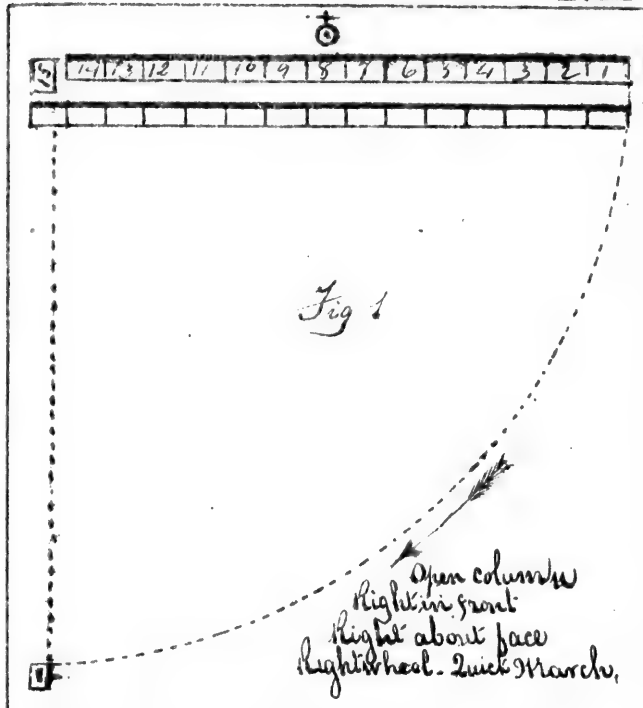 14 13 12 11 10 9 8 7 6 5 4 3 2 1
Fig 1
Open column
Right in front
Right about face
Right wheel - Quick March,